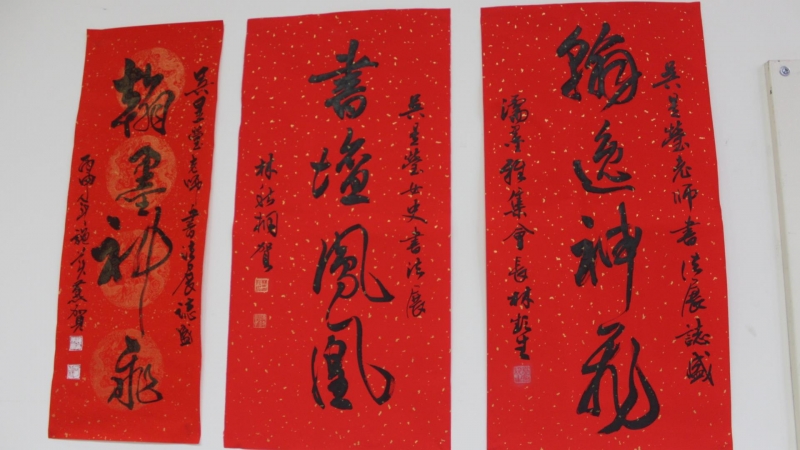 吳星老師書法展誌盛
翰逸神飛
雅集會長林
吳星女史書法展
書壇鳳凰
林賀
吳星老師書法展誌盛
翰墨神飛
年謝賀